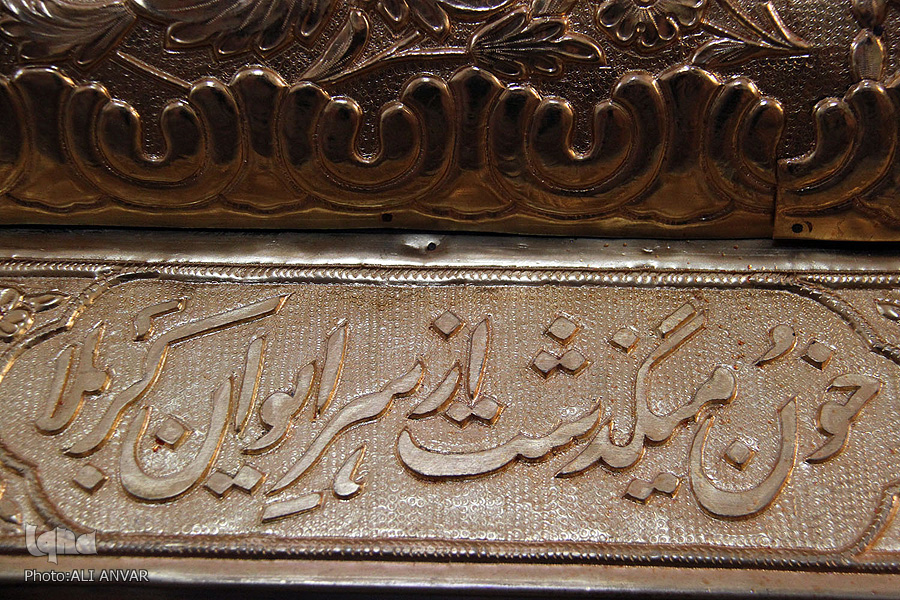 خون میگذشت از سرِ هر ایوان کربلا
iqna
Photo:ALI ANVAR